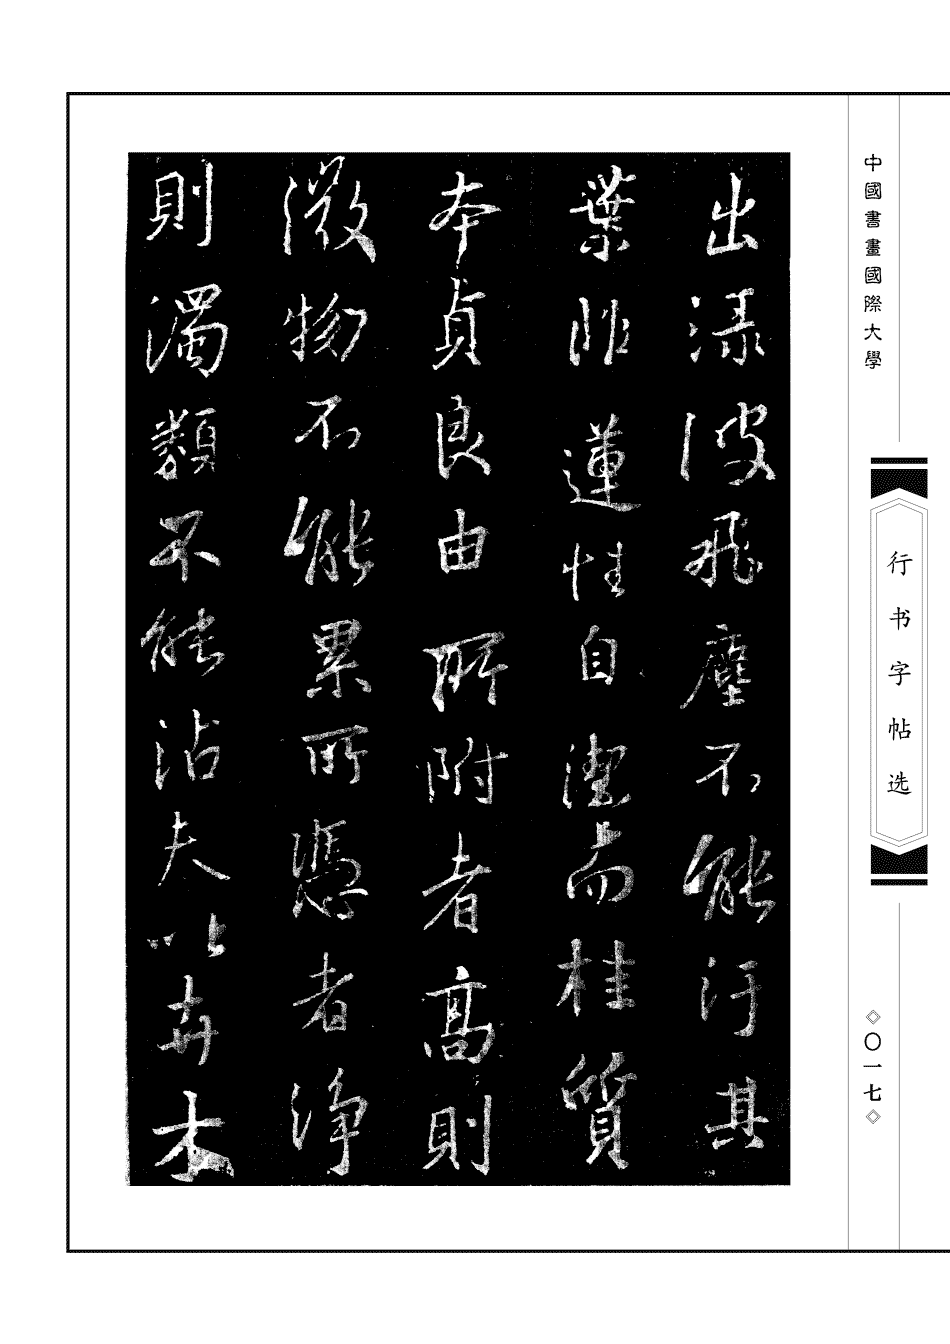 中國書畫國際大學
行书字帖选
◇〇一七◇
出渌波飛塵不能汙其
葉非蓮性自潔而桂質
本貞良由所附者高則
微物不能累所憑者淨
則濁類不能沾夫以卉木